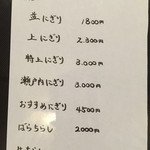 生にぎり 1800円
上にぎり 2.300円
特上にぎり 3.000円
瀬戸内にぎり 3.000円
おすすめにぎり 4500円
ばらちらし 2000円